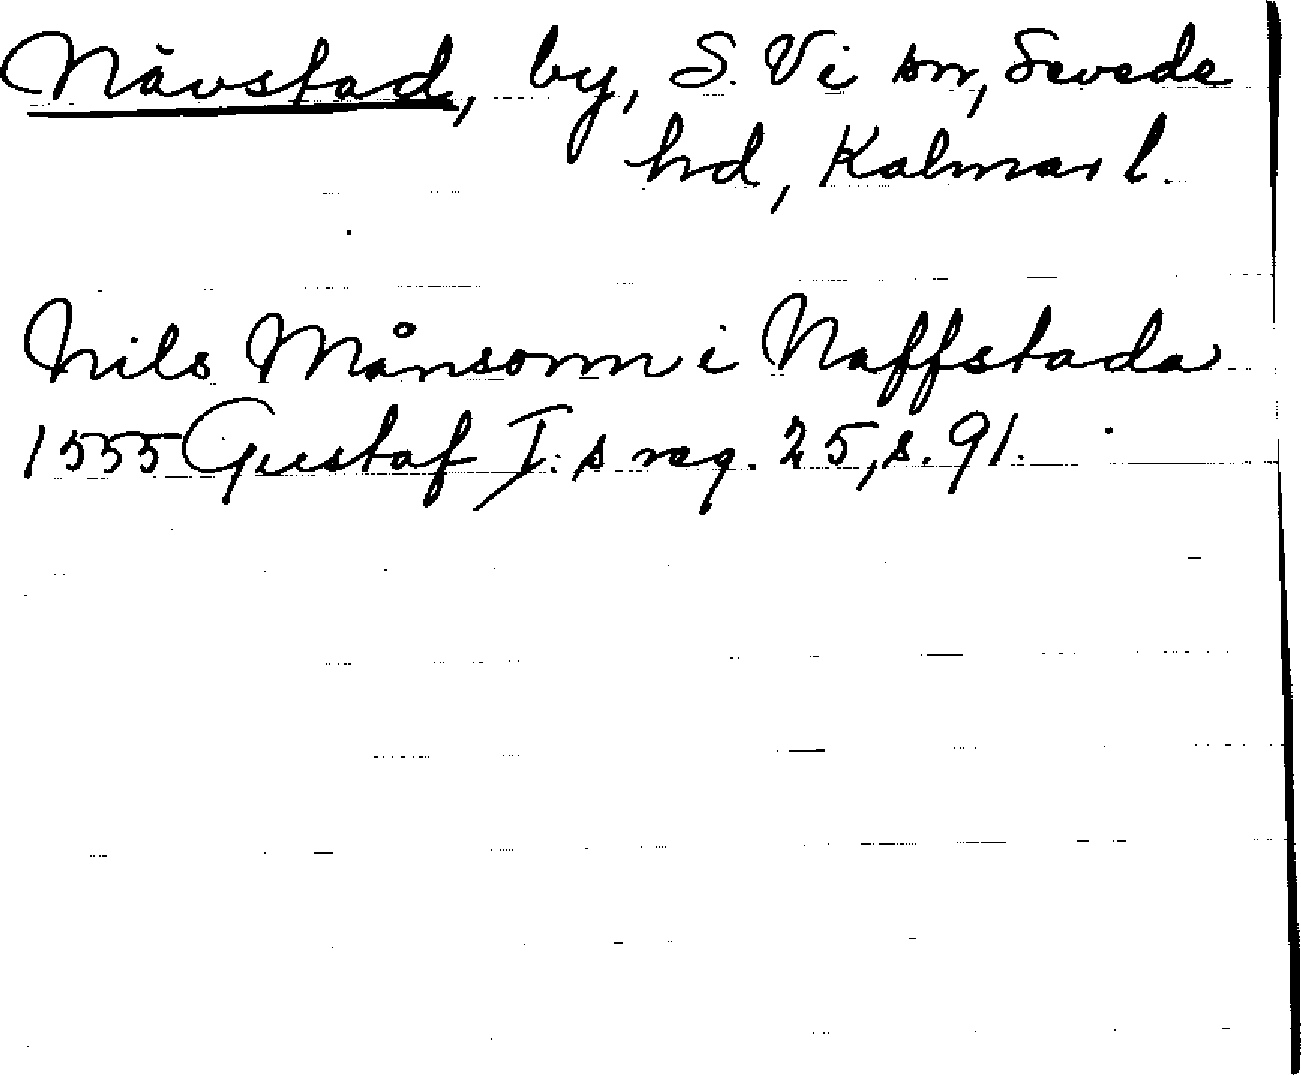 Nåvstad, by, S. Vi sn, Sevede
hd, Kalmar l.
Nils Månsonn i Naffstada
1555 Gustaf I:s reg. 25, s. 91.